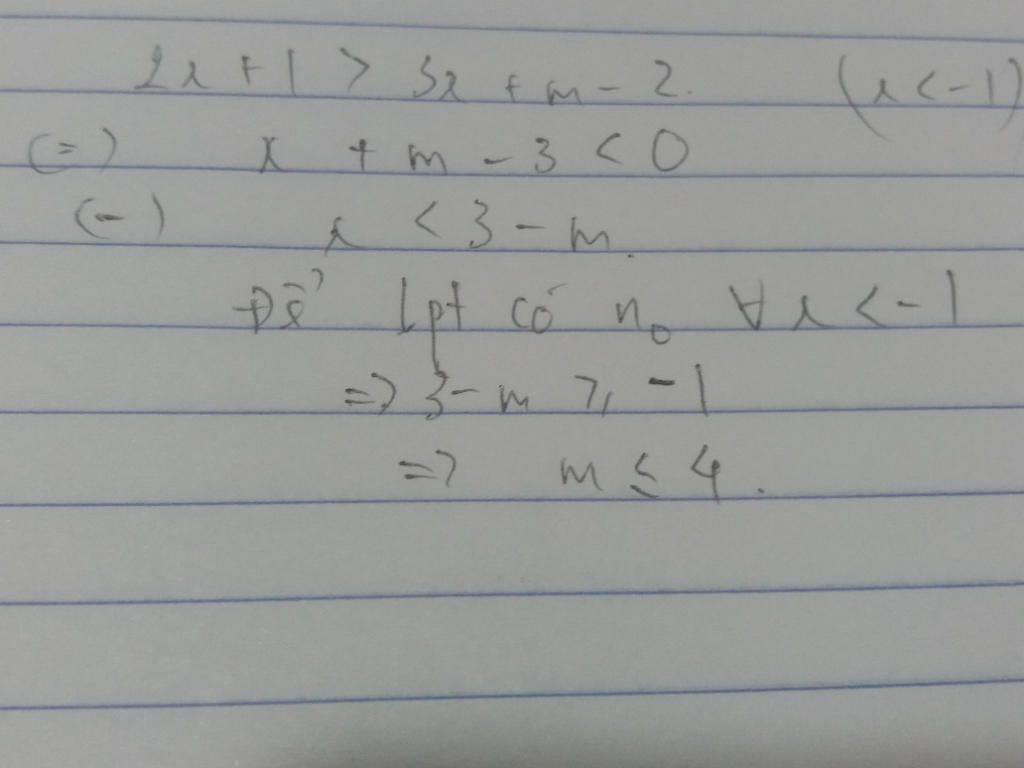 2x + 1 > 3x + m - 2. (x < -1)
(=) x + m - 3 < 0
(-) x < 3 - m.
Để bpt có n₀ ∀ x < -1
=> 3 - m ≥ -1
=> m ≤ 4.